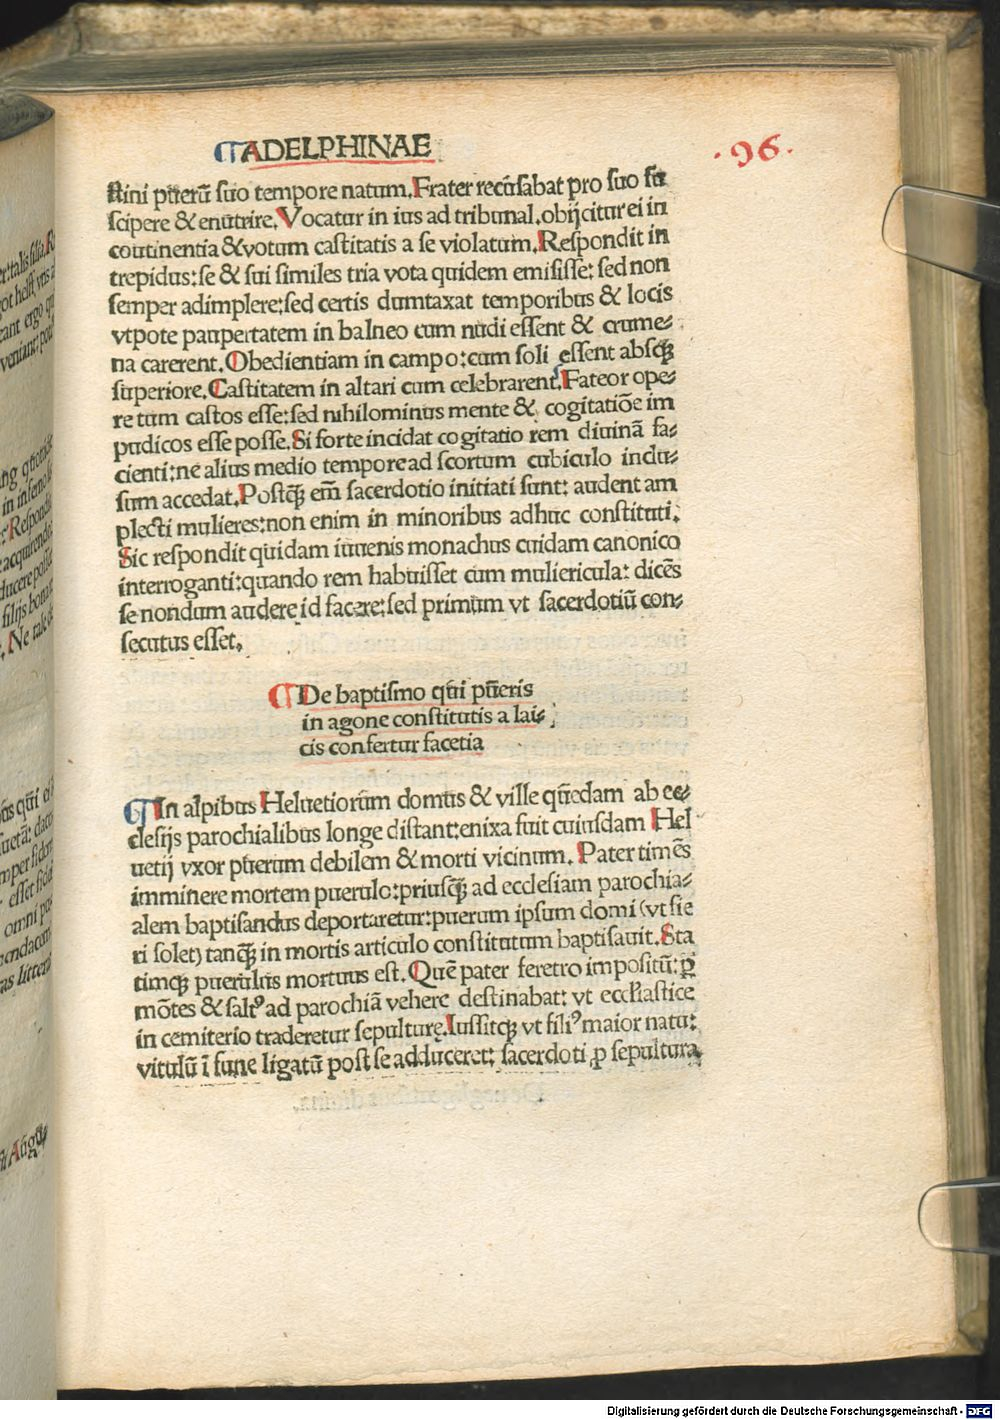 ¶ADELPHINAE
.96.
stini puerū suo tempore natum. Frater recusabat pro suo su
scipere & enutrire. Vocatur in ius ad tribunal. obijcitur ei in
continentia & votum castitatis a se violatum. Respondit in
trepidus: se & sui similes tria vota quidem emisisse: sed non
semper adimplere: sed certis dumtaxat temporibus & locis
vtpote paupertatem in balneo cum nudi essent & crume-
na carerent. Obedientiam in campo: cum soli essent absq̃
superiore. Castitatem in altari cum celebrarent. Fateor ope-
re tum castos esse: sed nihilominus mente & cogitatiōe im
pudicos esse posse. Si forte incidat cogitatio rem diuinā fa-
cienti: ne alius medio tempore ad scortum cubiculo inclu-
sum accedat. Postq̃ em̄ sacerdotio initiati sunt: audent am
plecti mulieres: non enim in minoribus adhuc constituti.
Sic respondit quidam iuuenis monachus cuidam canonico
interroganti: quando rem habuisset cum muliercula: dicēs
se nondum audere id facere: sed primum vt sacerdotiū con-
secutus esset.
¶De baptismo qui pueris
in agone constitutis a lai-
cis confertur facetia
¶In alpibus Heluetiorum domus & ville quedam ab ec-
clesijs parochialibus longe distant: enixa fuit cuiusdam Hel
uetij vxor puerum debilem & morti vicinum. Pater timēs
imminere mortem puerulo: priusq̃ ad ecclesiam parochia-
alem baptisandus deportaretur: puerum ipsum domi (vt fie
ri solet) tanq̃ in mortis articulo constitutum baptisauit. Sta
timq; puerulus mortuus est. Quē pater feretro impositū: ꝑ
mōtes & saltꝰ ad parochiā vehere destinabat: vt ecclīastice
in cemiterio traderetur sepulturę. Iussitq; vt filiꝰ maior natu:
vitulū ī fune ligatū post se adduceret: sacerdoti ꝓ sepultura
Digitalisierung gefördert durch die Deutsche Forschungsgemeinschaft - DFG